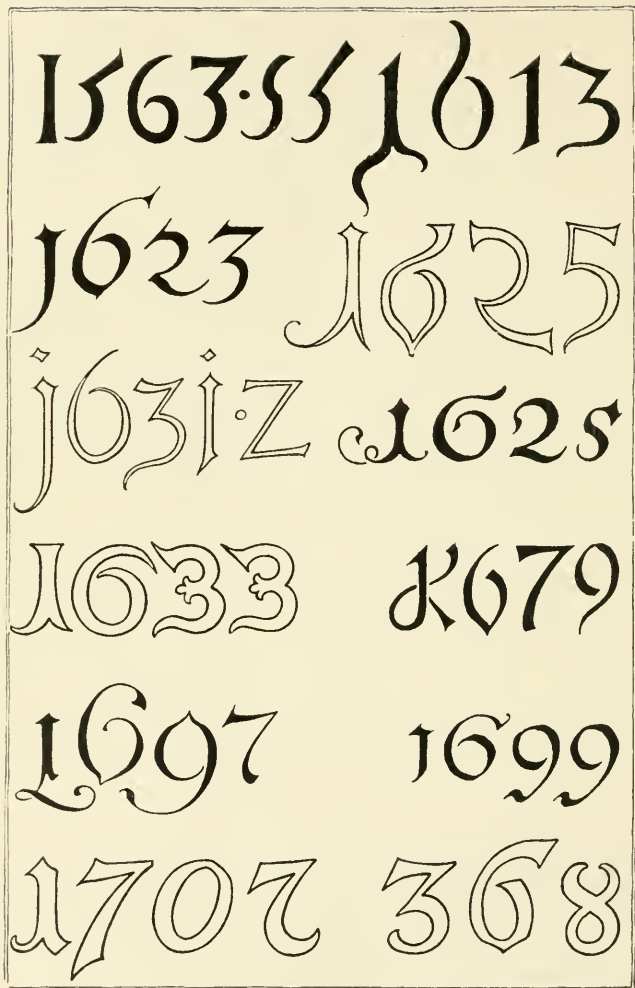 1563·55 1613
1623 1625
1631·2 1625
1633 1679
1697 1699
1702 368